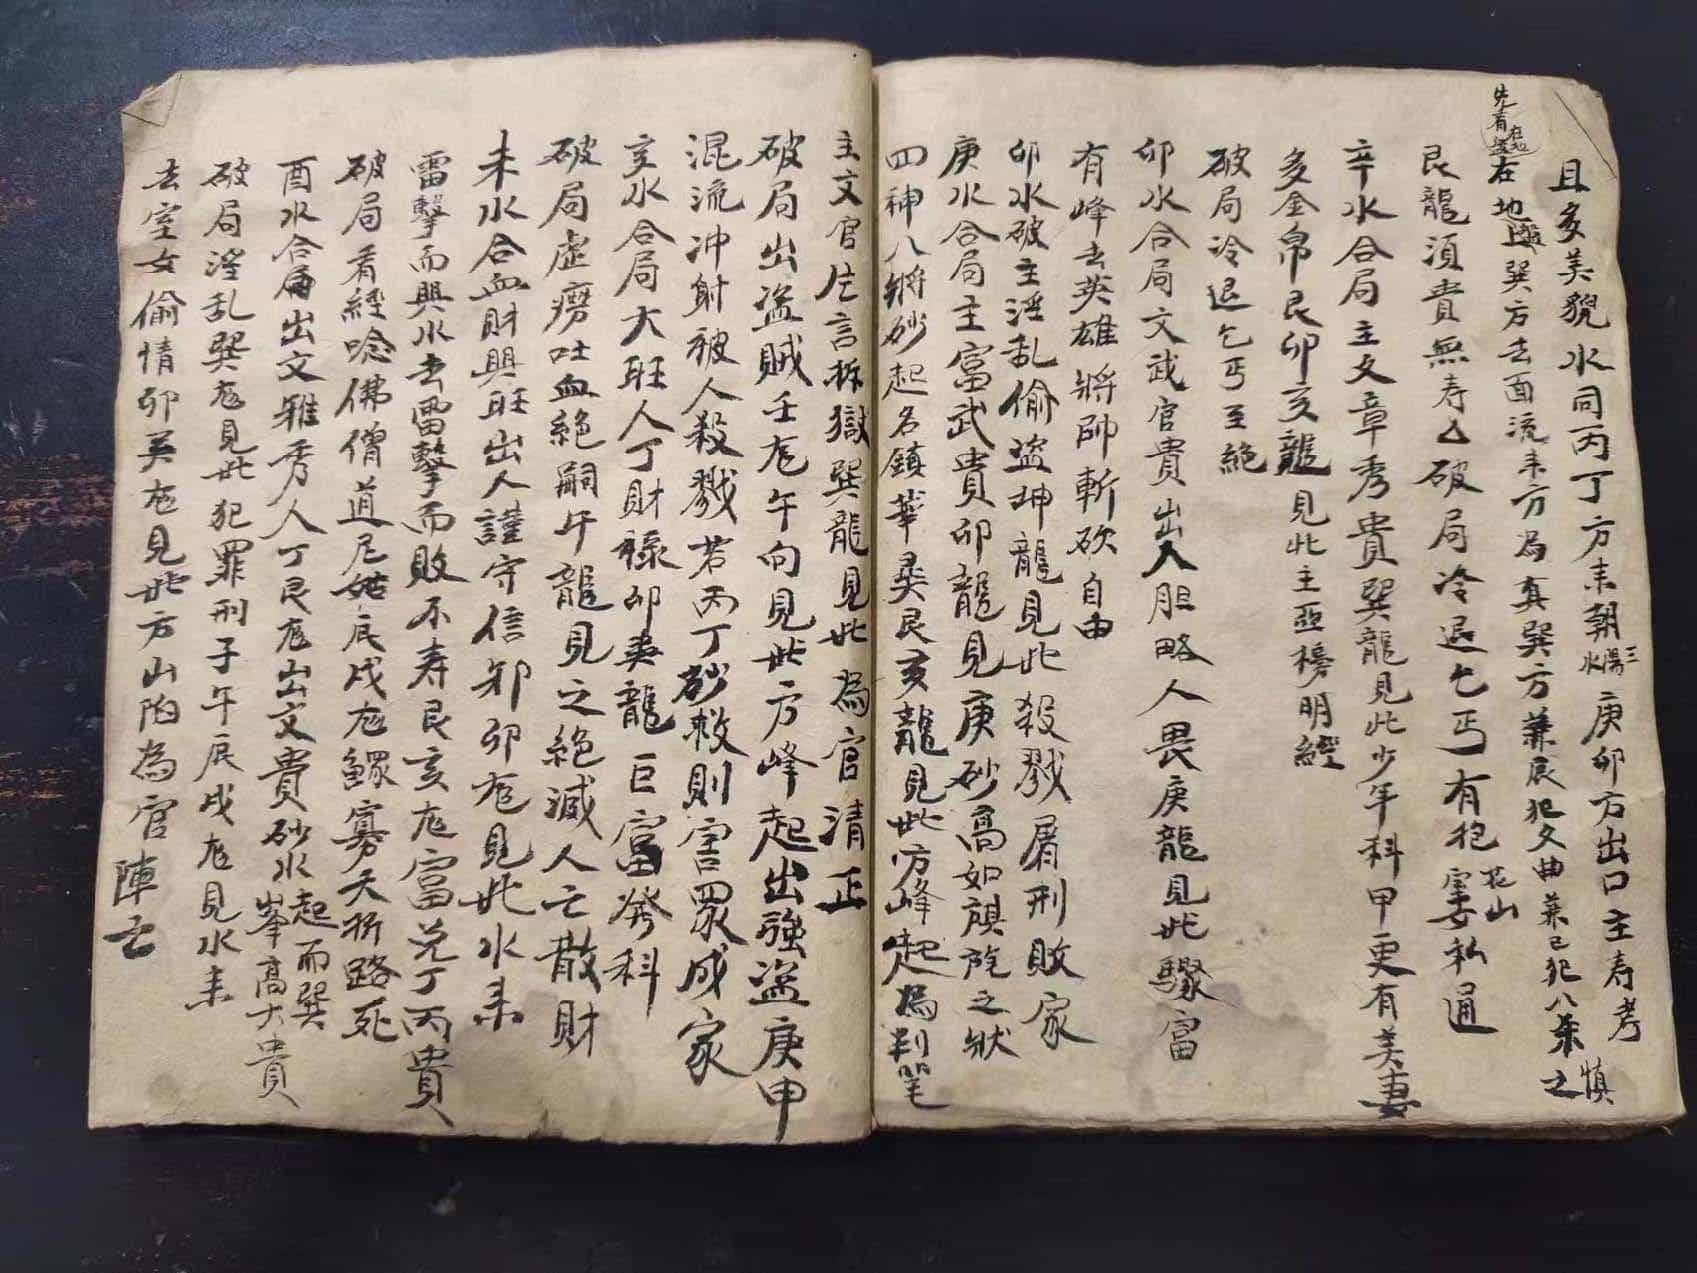 且多美貌水同丙丁方耒朝三陽水庚卯方出口主寿考
先看在地盤在地盤巽方去面流耒方為真巽方兼辰犯文曲兼巳犯八杀之慎
艮龍須貴無寿破局冷退乞丐有抱花山妻私通
辛水合局主文章秀貴巽龍見此少年科甲更有美妻
多金帛艮卯亥龍見此主亞榜明經
破局冷退乞丐至絕
卯水合局文武官貴出入胆略人畏庚龍見此驟富
有峰去英雄將帥斬砍自由
卯水破主淫乱偷盗坤龍見此殺戮屠刑敗家
庚水合局主富武貴卯龍見庚砂高如旗旄之狀
四神八將砂起名鎮華夷艮亥龍見此方峰起為判筆
主文官片言折獄巽龍見此為官清正
破局出盗賊壬尨午向見此方峰起出強盗庚申
混流冲射被人殺戮若丙丁砂救則害眾成家
亥水合局大旺人丁財祿卯龍巨富發科
破局虛癆吐血絕嗣午龍見之絕滅人亡散財
未水合血財興旺出人謹守信卯尨見此水耒
雷擊而興水去雷擊而敗不寿艮亥尨富兌丁丙貴
破局看經唸佛僧道尼姑辰戌尨鰥寡夭折路死
酉水合局出文雅秀人丁艮尨出文貴砂水起而巽峯高大貴
破局淫乱巽尨見此犯罪刑子午辰戌尨見水耒
去室女偷情卯尨見此方山陷為官陣亡